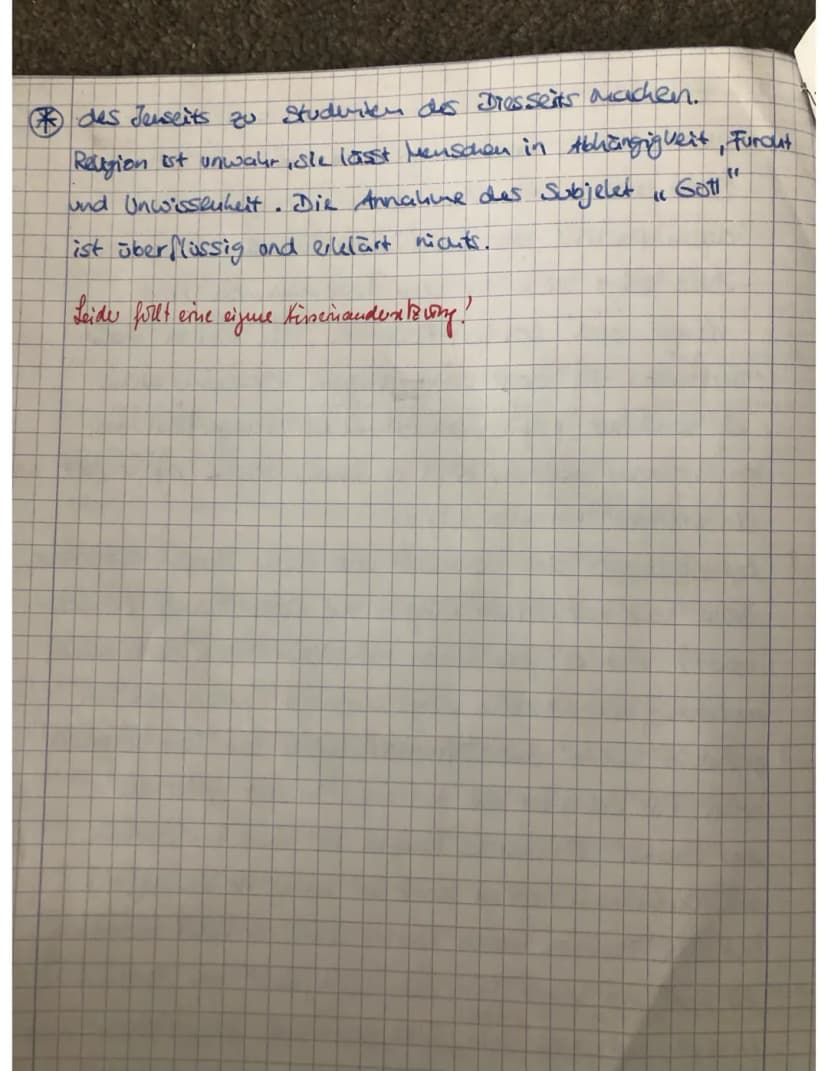 * des Jenseits zu Studenten des Diesseits machen.
Religion ist unwahr, sie lässt Menschen in Abhängigkeit, Furcht
und Unwissenheit. Die Annahme des Subjekt „Gott"
ist überflüssig und erklärt nichts.
Leider fehlt eine eigene Auseinandersetzung!